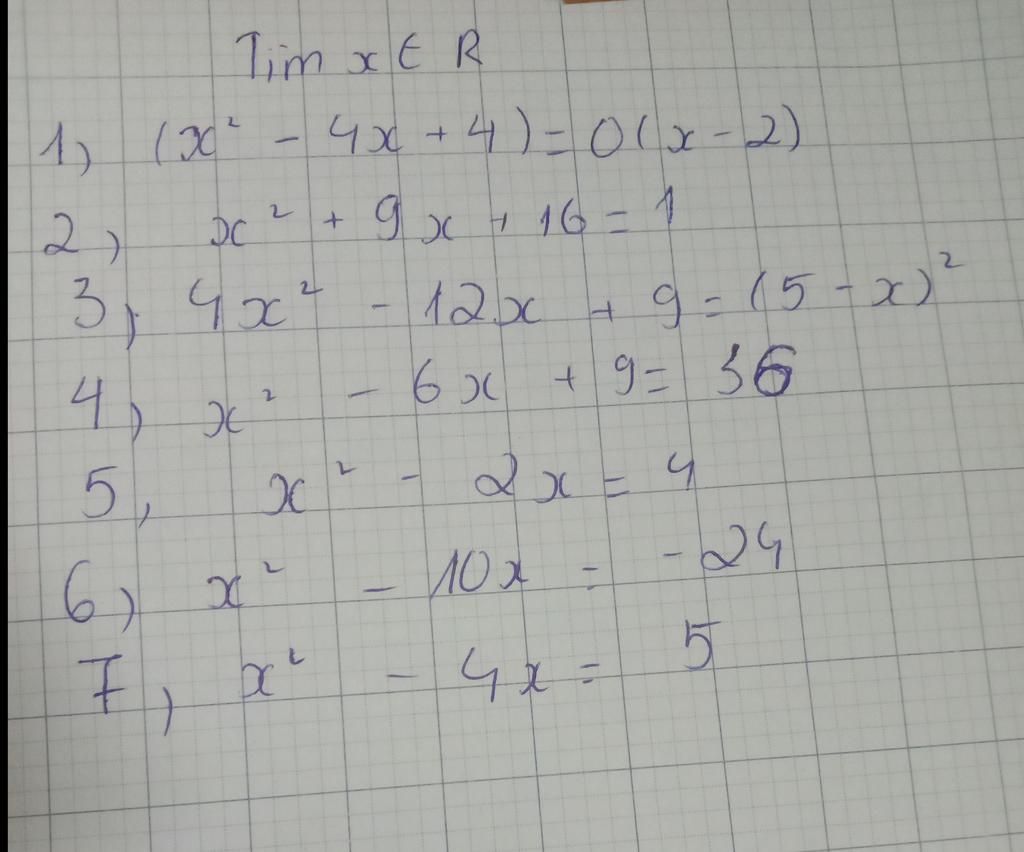 Tim x ∈ R
1, (x² - 4x + 4) = 0(x - 2)
2, x² + 9x + 16 = 1
3, 4x² - 12x + 9 = (5 - x)²
4, x² - 6x + 9 = 36
5, x² - 2x = 4
6, x² - 10x = -24
7, x² - 4x = 5